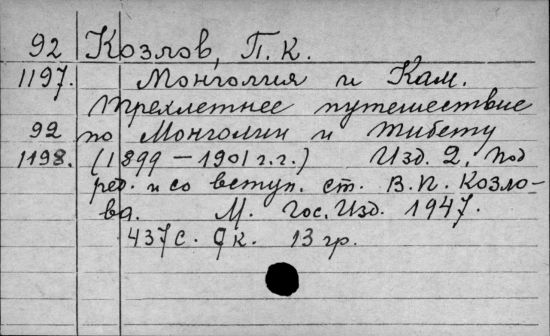 92 Козлов, П. К.
1197. Монголия и Кам.
Трехлетнее путешествие
92 по Монголии и Тибету
1198. (1899 – 1901 г.г.) Изд. 2, под
ред. и со вступ. ст. В. П. Козло-
ва. М. Гос. Изд. 1947.
437 с. к. 13 гр.